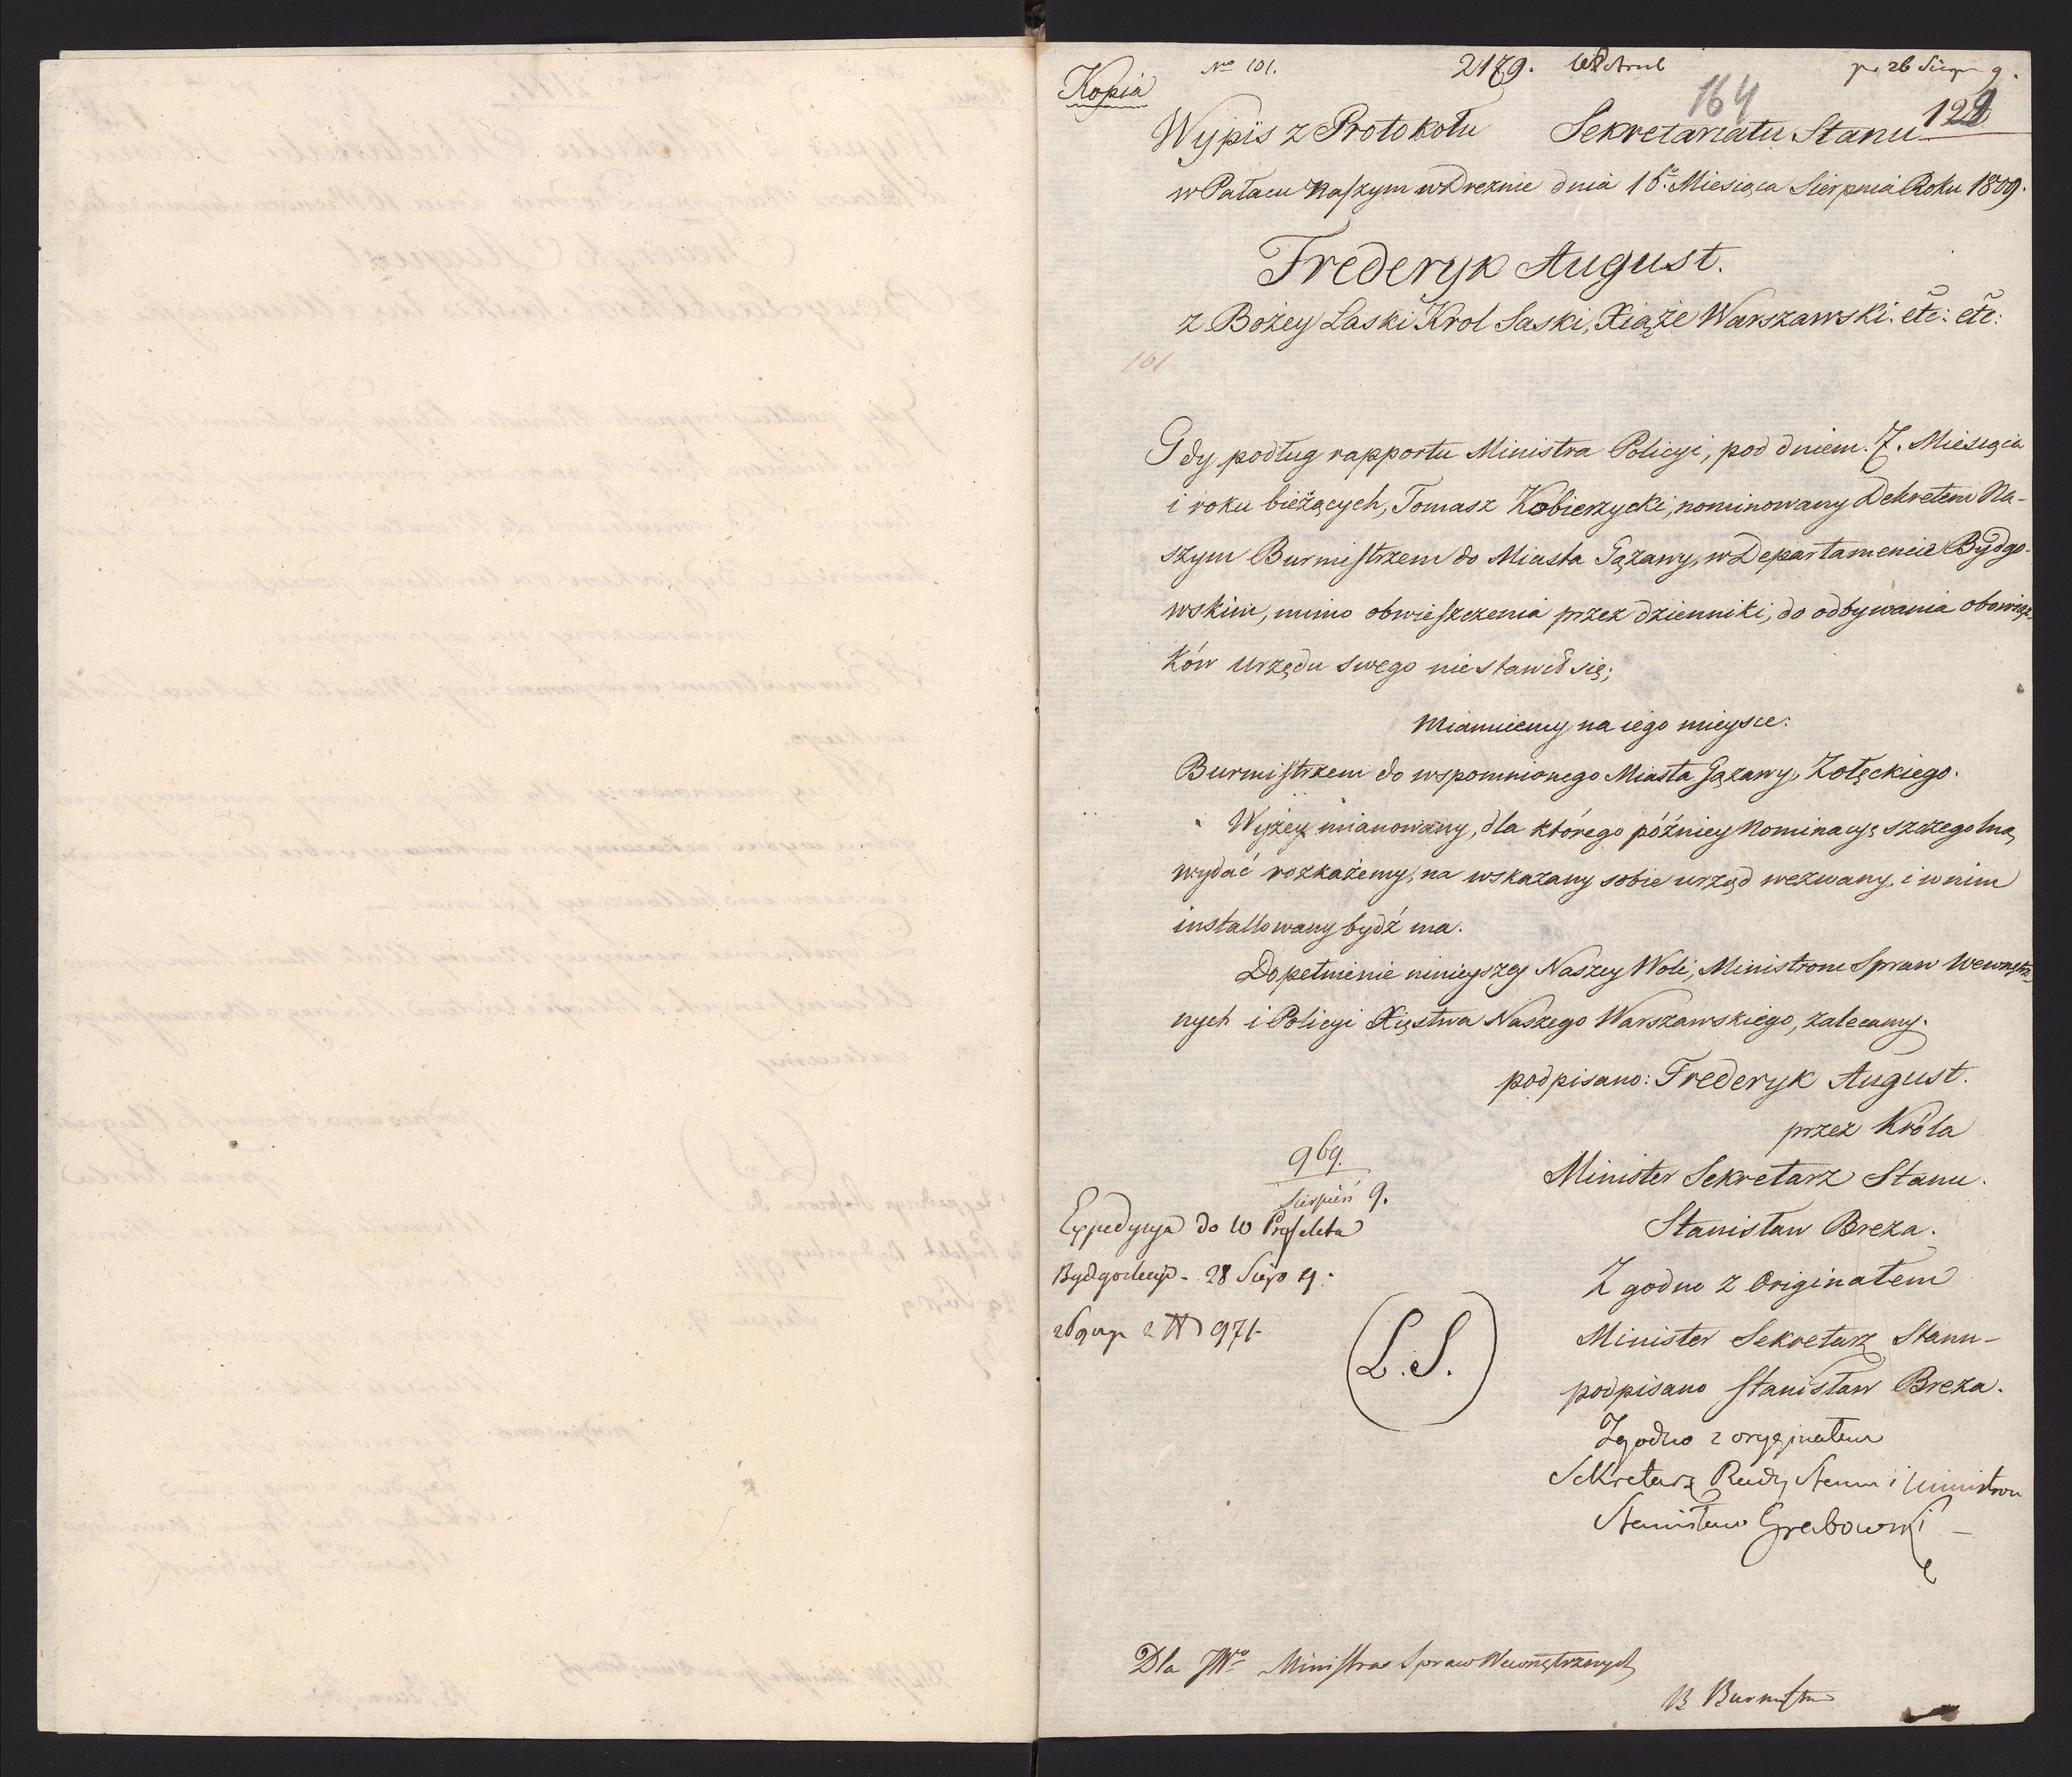 Kopia
No 101.
2179.
164
128
Wypis z Protokołu Sekretariatu Stanu
w Pałacu Naszym w Dreznie dnia 16go Miesiąca Sierpnia Roku 1809.
Frederyk August.
z Bożey Łaski Krol Saski, Xiąże Warszawski. etc: etc:
101
Gdy podług rapportu Ministra Policyi, pod dniem 7. Miesiąca
i roku bieżących, Tomasz Kobierzycki, nominowany Dekretem Na-
szym Burmistrzem do Miasta Gązawy, w Departamencie Bydgo-
wskim, mimo obwieszczenia przez dzienniki, do odbywania obowiąz-
ków urzędu swego nie stawił się;
Mianuiemy na iego mieysce:
Burmistrzem do wspomnionego Miasta Gązawy, Zołęckiego.
Wyżey mianowany, dla którego późniey Nominacyę szczegolną
wydać rozkażemy, na wskazany sobie urząd wezwany i w nim
installowany bydź ma.
Dopełnienie ninieyszey Naszey Woli, Ministrom Spraw Wewnętrz-
nych i Policyi Xięstwa Naszego Warszawskiego, zalecamy.
podpisano: Frederyk August.
przez Króla
Minister Sekretarz Stanu.
Stanisław Breza.
Zgodno z Originałem
Minister Sekretarz Stanu
podpisano Stanisław Breza.
Zgodno z oryginałem
Sekretarz Rady Stanu i Ministrów
Stanisław Grabowski
969.
Sierpień 9.
Expedycya do W Prefekta
Bydgoskiego 28 Sierp 9.
971
(L.S.)
Dla JWo Ministra Spraw Wewnętrznych
B Burmistrz